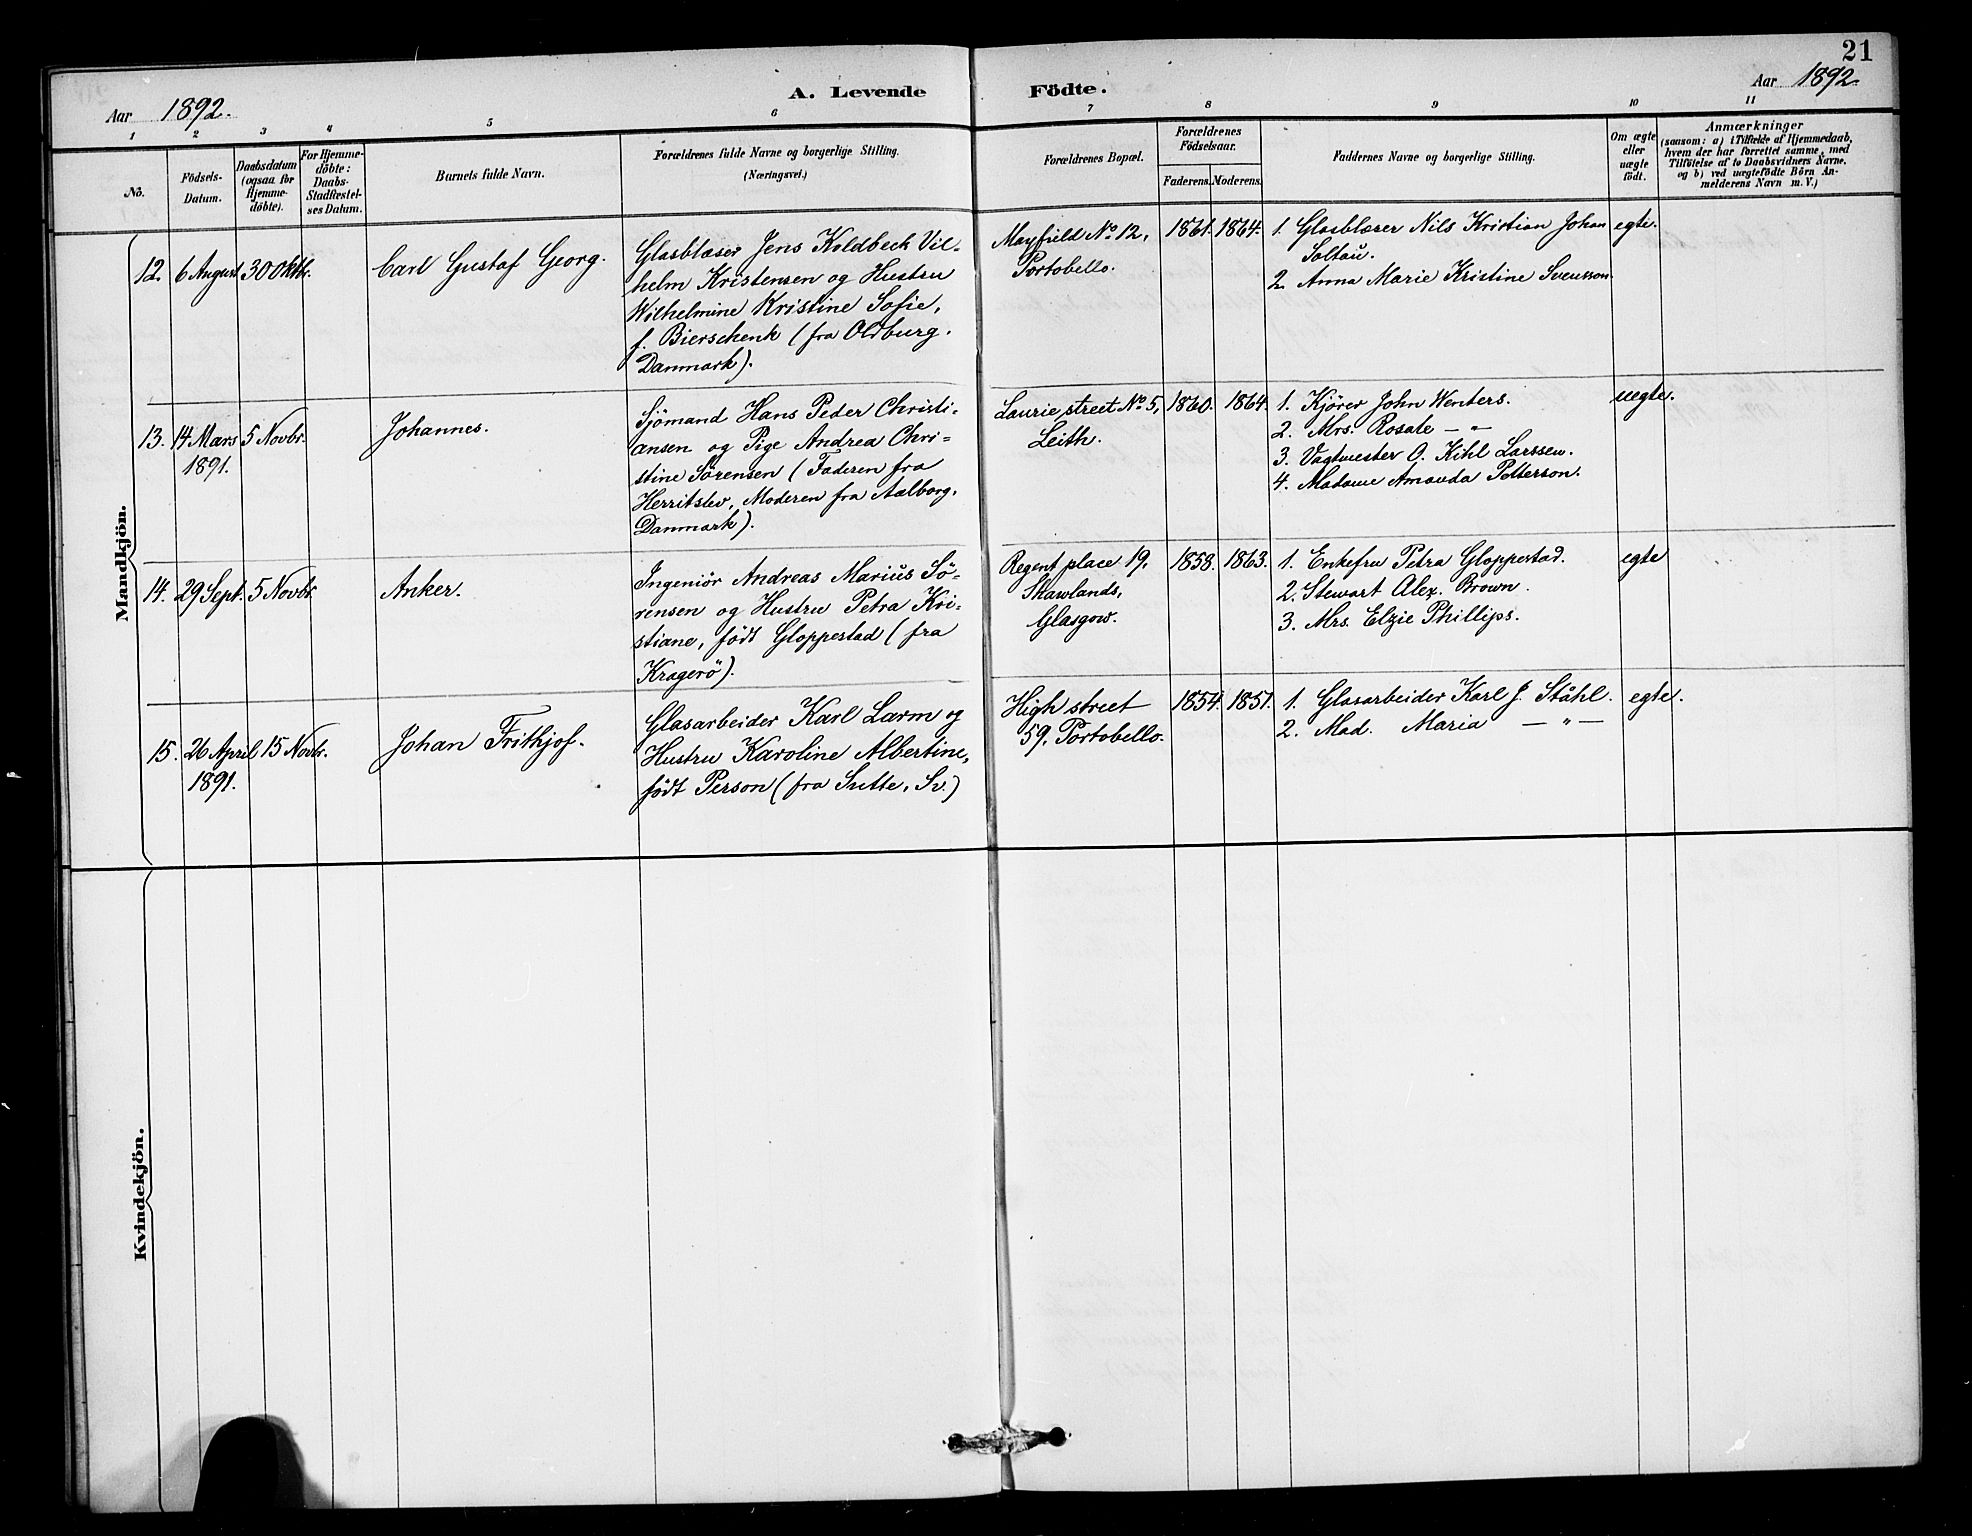 21
Aar 1892.
A. Levende Födte.
Aar 1892.
1 2 3 4 5 6 7 8 9 10 11
No.
Födsels-
Datum.
Daabsdatum
(ogsaa for
Hjemme-
döbte).
For Hjemme-
döbte:
Daabs-
Stadfæstel-
ses Datum.
Barnets fulde Navn.
Forældrenes fulde Navne og borgerlige Stilling.
(Næringsvei.)
Forældrenes Bopæl.
Forældrenes
Födselsaar.
Faderens. Moderens.
Faddernes Navne og borgerlige Stilling.
Om ægte
eller
uægte
födt.
Anmærkninger
(saasom: a) i Tilfælde af Hjemmedaab,
hvem der har forrettet samme, med
Tilföielse af to Daabsvidners Navne,
og b) ved uægtefödte Börn An-
melderens Navn m. V.)
Mandkjön.
12. 6 August 30 Oktbr. Carl Gustaf Georg.
Glasblæser Jens Koldbeck Vil-
helm Kristensen og Hustru
Wilhelmine Kristine Sofie,
f. Bierschenk (fra Oldburg.
Danmark).
Mayfield No 12,
Portobello.
1861. 1864.
1. Glasblæser Nils Kristian Johan
Soltau.
2. Anna Marie Kristine Svensson.
egte.
13. 14 Mars
1891.
5 Novbr. Johannes.
Sjömand Hans Peder Christi-
ansen og Pige Andrea Chri-
stine Sörensen (Faderen fra
Herritslev, Moderen fra Aalborg,
Danmark).
Laurie street No 5,
Leith.
1860. 1864.
1. Kjörer John Wenters.
2. Mrs. Rosale — " —
3. Vagtmester O. Kihl Larssen.
4. Madame Amanda Petterson.
uegte.
14. 29 Sept. 5 Novbr. Anker.
Ingeniör Andreas Marius Sö-
rensen og Hustru Petra Kri-
stiane, födt Gloppestad (fra
Kragerö).
Regent place 19,
Shawlands,
Glasgow.
1858. 1863.
1. Enkefru Petra Gloppestad.
2. Stewart Alex. Brown.
3. Mrs. Elzie Phillips.
egte
15. 26 April
1891.
15 Novbr. Johan Frithjof.
Glasarbeider Karl Larm og
Hustru Karoline Albertine,
födt Person (fra Sutte, Sv.)
High street
59, Portobello.
1854. 1851.
1. Glasarbeider Karl J. Ståhl.
2. Mad. Maria — " —
egte.
Kvindekjön.